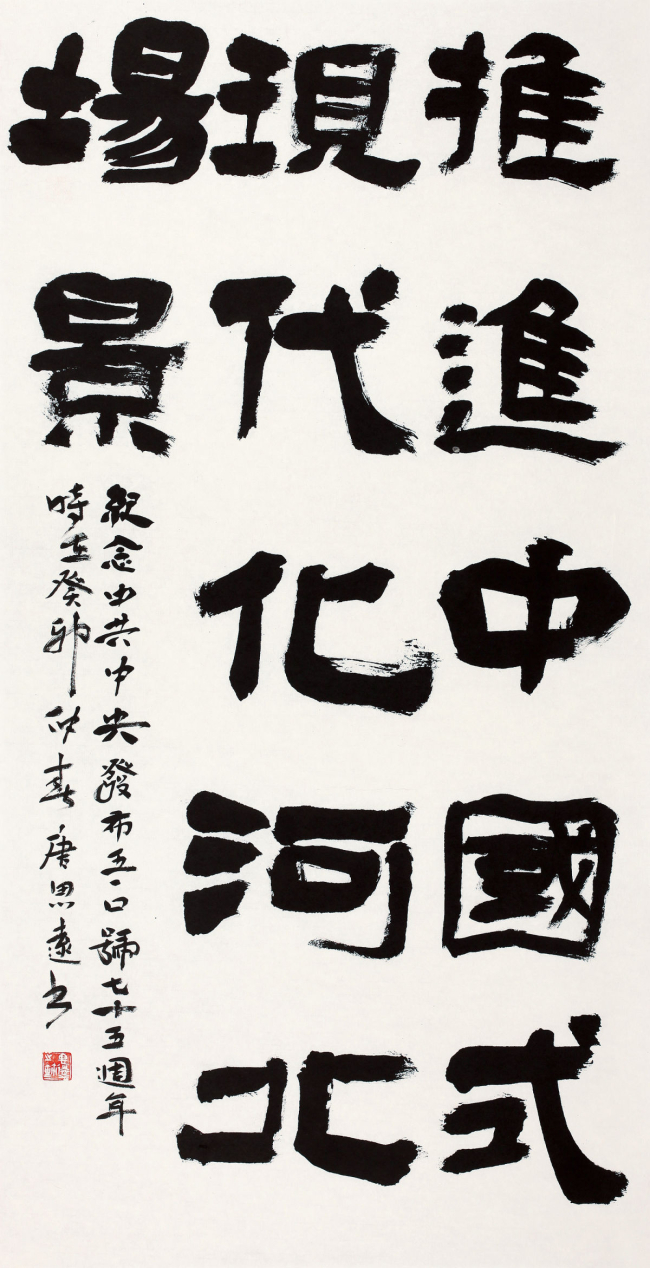 推進中國式
現代化河北
場景
紀念中共中央發布五一口號七十五週年
時在癸卯仲春唐思遠書